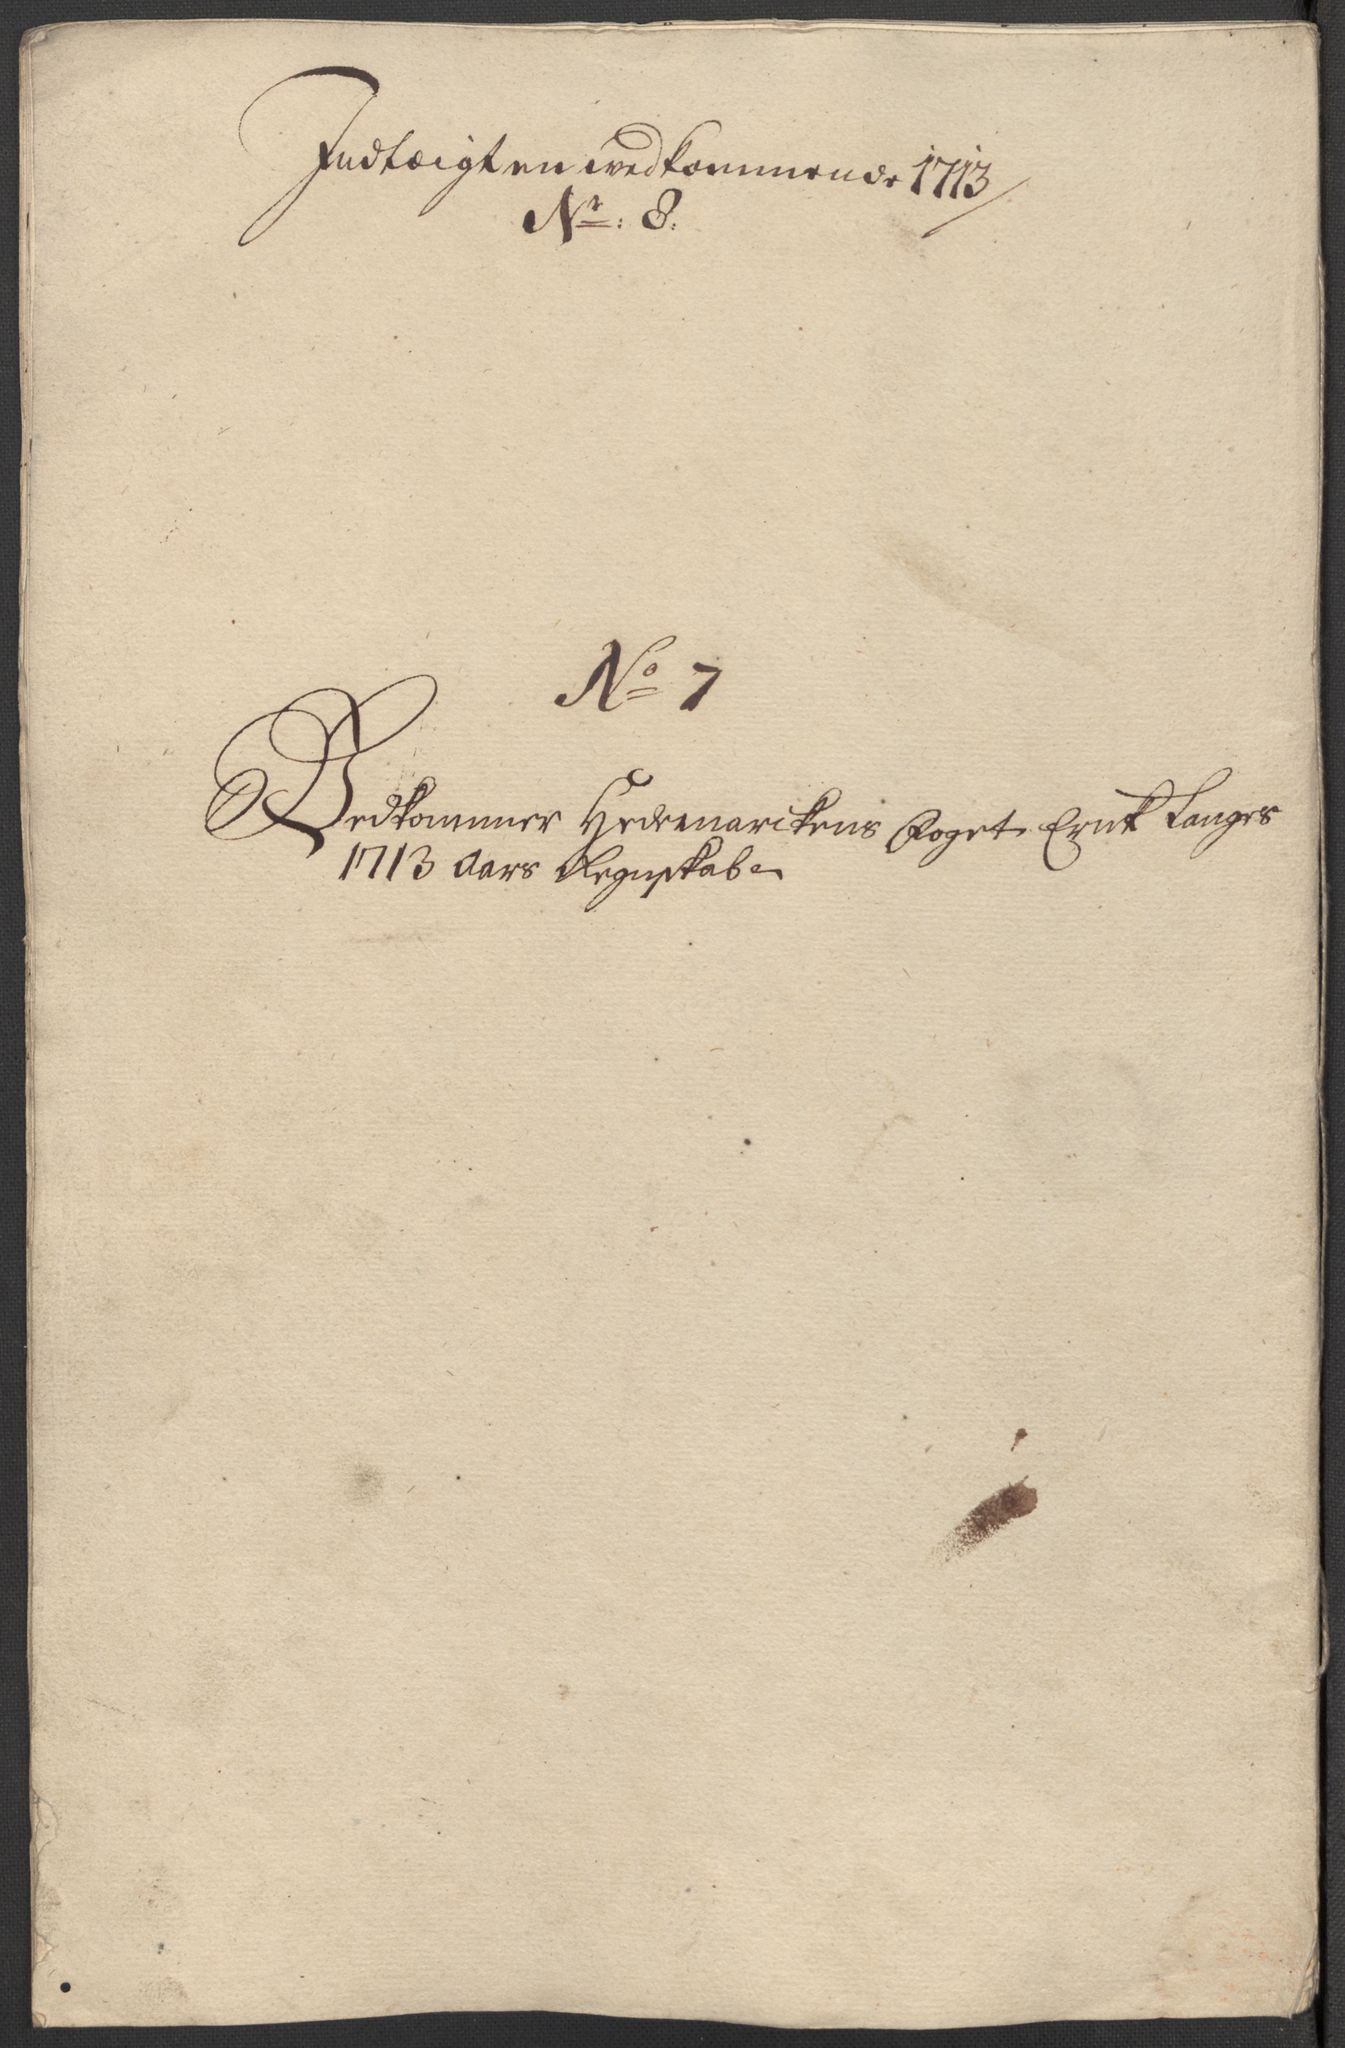 Indtægten vedkommende 1713
Nr: 8.
No 7
Vedkommer Hedemarckens Fogets Langes
1713 Aars Regnskab